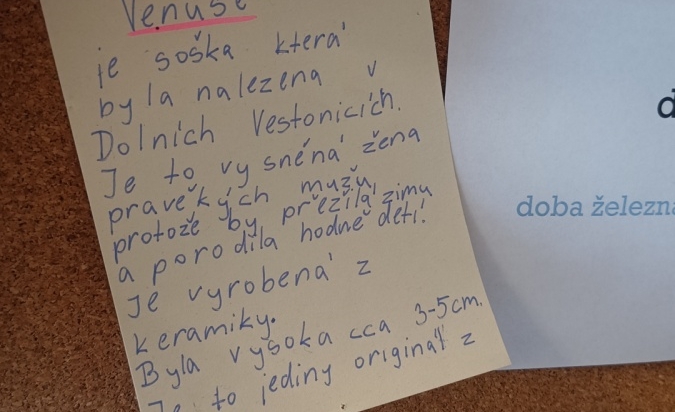 Venuše
je soška která
byla nalezena v
Dolních Vestonicích.
Je to vysněná žena
pravěkých mužů,
protože by přežila zimu
a porodila hodně dětí!
Je vyrobená z
keramiky.
Byla vysoka cca 3-5cm.
Je to jediny originál z
doba železn